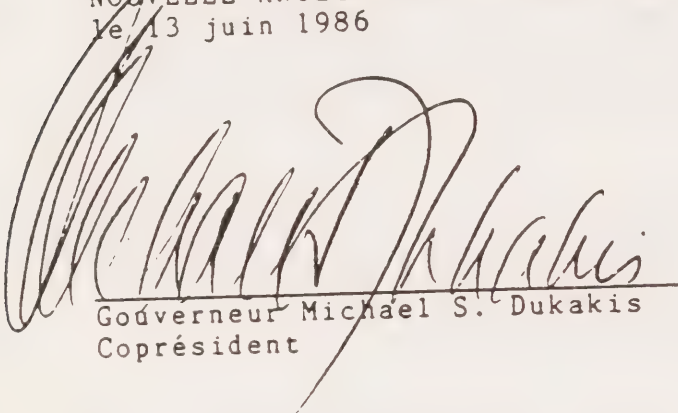 NOUVELLE
le 13 juin 1986
Michael Dukakis
Gouverneur Michael S. Dukakis
Coprésident